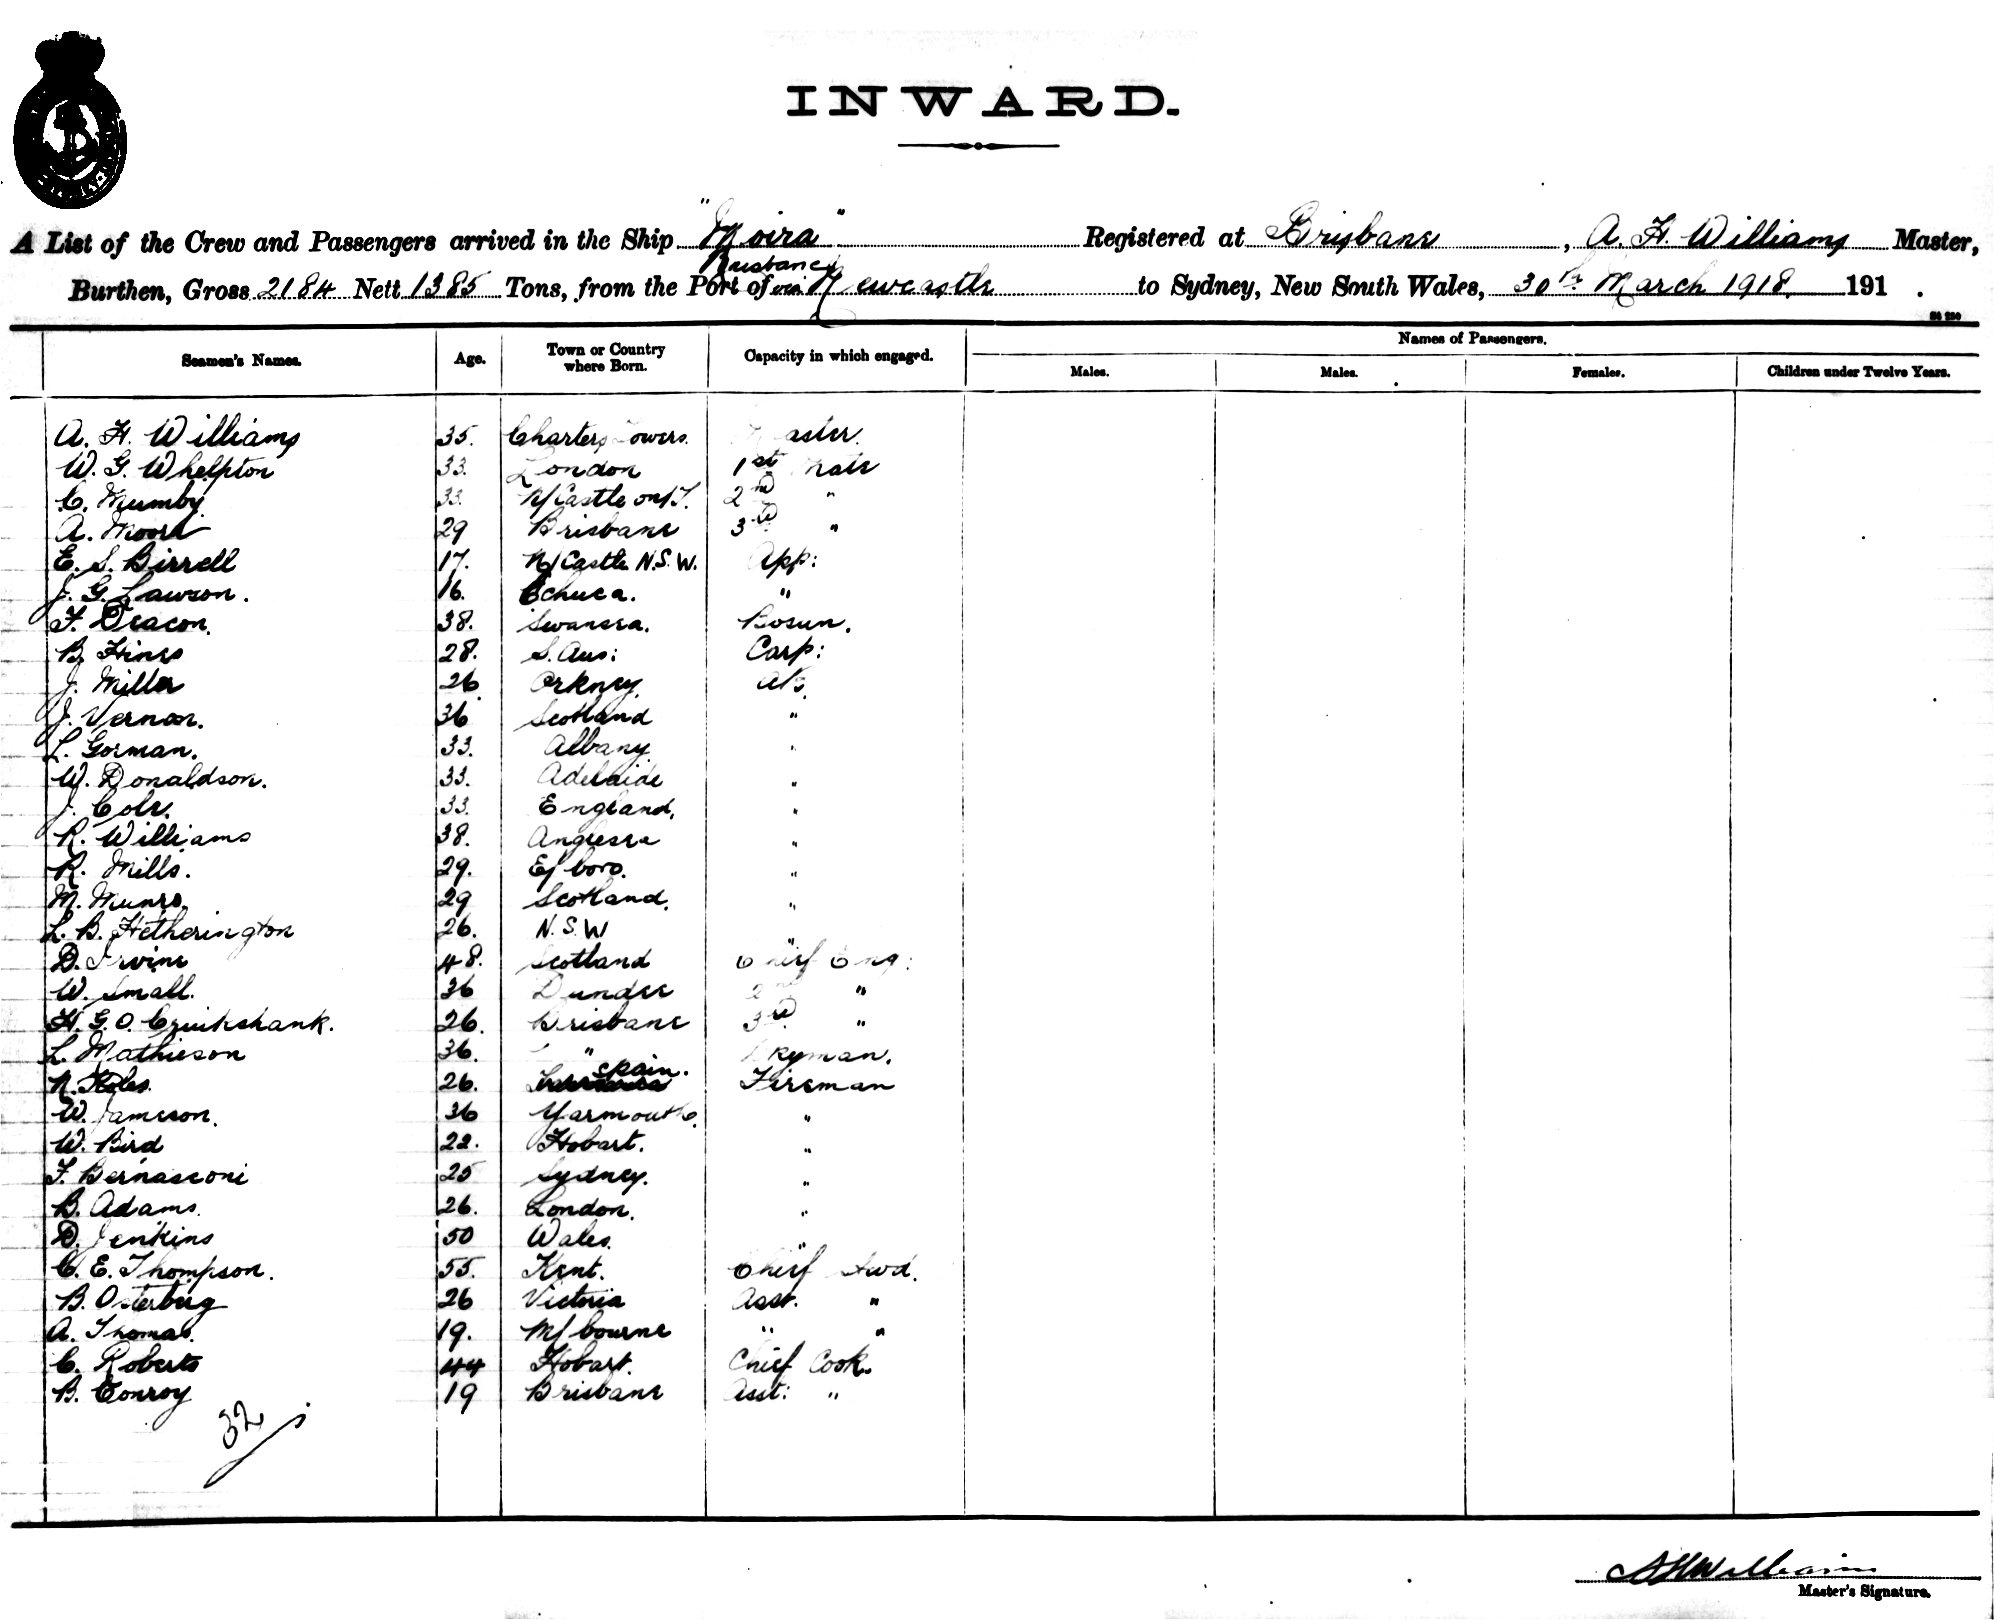 INWARD.
A List of the Crew and Passengers arrived in the Ship "Moira" Registered at Brisbane, A. H. Williams Master,
Brisbane
Burthen, Gross 2184 Nett 1385 Tons, from the Port of via Newcastle to Sydney, New South Wales, 30th March 1918. 191 .
Seamen's Names. Age. Town or Country where Born. Capacity in which engaged. Names of Passengers.
Males. Males. Females. Children under Twelve Years.
A. H. Williams 35. Charters Towers. Master.
W. G. Whelpton 33. London 1st Mate
C. Mumby 33. N/Castle on/T. 2nd "
A. Moore 29 Brisbane 3rd "
E. S. Birrell 17. N/Castle N.S.W. App:
J. G. Lawson. 16. Echuca. "
F. Deacon. 38. Swansea. Bosun.
B. Hines 28. S. Aus: Carp:
J. Miller 26. Orkney. AB.
J. Vernon. 36 Scotland "
L. Gorman. 33. Albany "
W. Donaldson. 33. Adelaide "
J. Cole. 33. England. "
R. Williams 38. Anglesea "
R. Mills. 29. E/boro. "
M. Munro. 29 Scotland. "
L. B. Hetherington 26. N.S.W "
D. Irvine 48. Scotland Chief Eng:
W. Small. 36 Dundee 2nd "
H. G. O. Cruikshank. 26. Brisbane 3rd "
L. Mathieson 36. " Dkyman.
N. 26. Spain. Fireman
W. Jameson. 36 Yarmouth. "
W. Bird 22. Hobart. "
F. Bernasconi 25 Sydney. "
B. Adams. 26. London. "
D. Jenkins 50 Wales. "
C. E. Thompson. 55. Kent. Chief Swd.
B. Osterberg 26 Victoria Asst. "
A. Thomas. 19. M/bourne " "
C. Roberts 44 Hobart. Chief Cook.
B. Conroy 19 Brisbane Asst: "
32
A H Williams
Master's Signature.